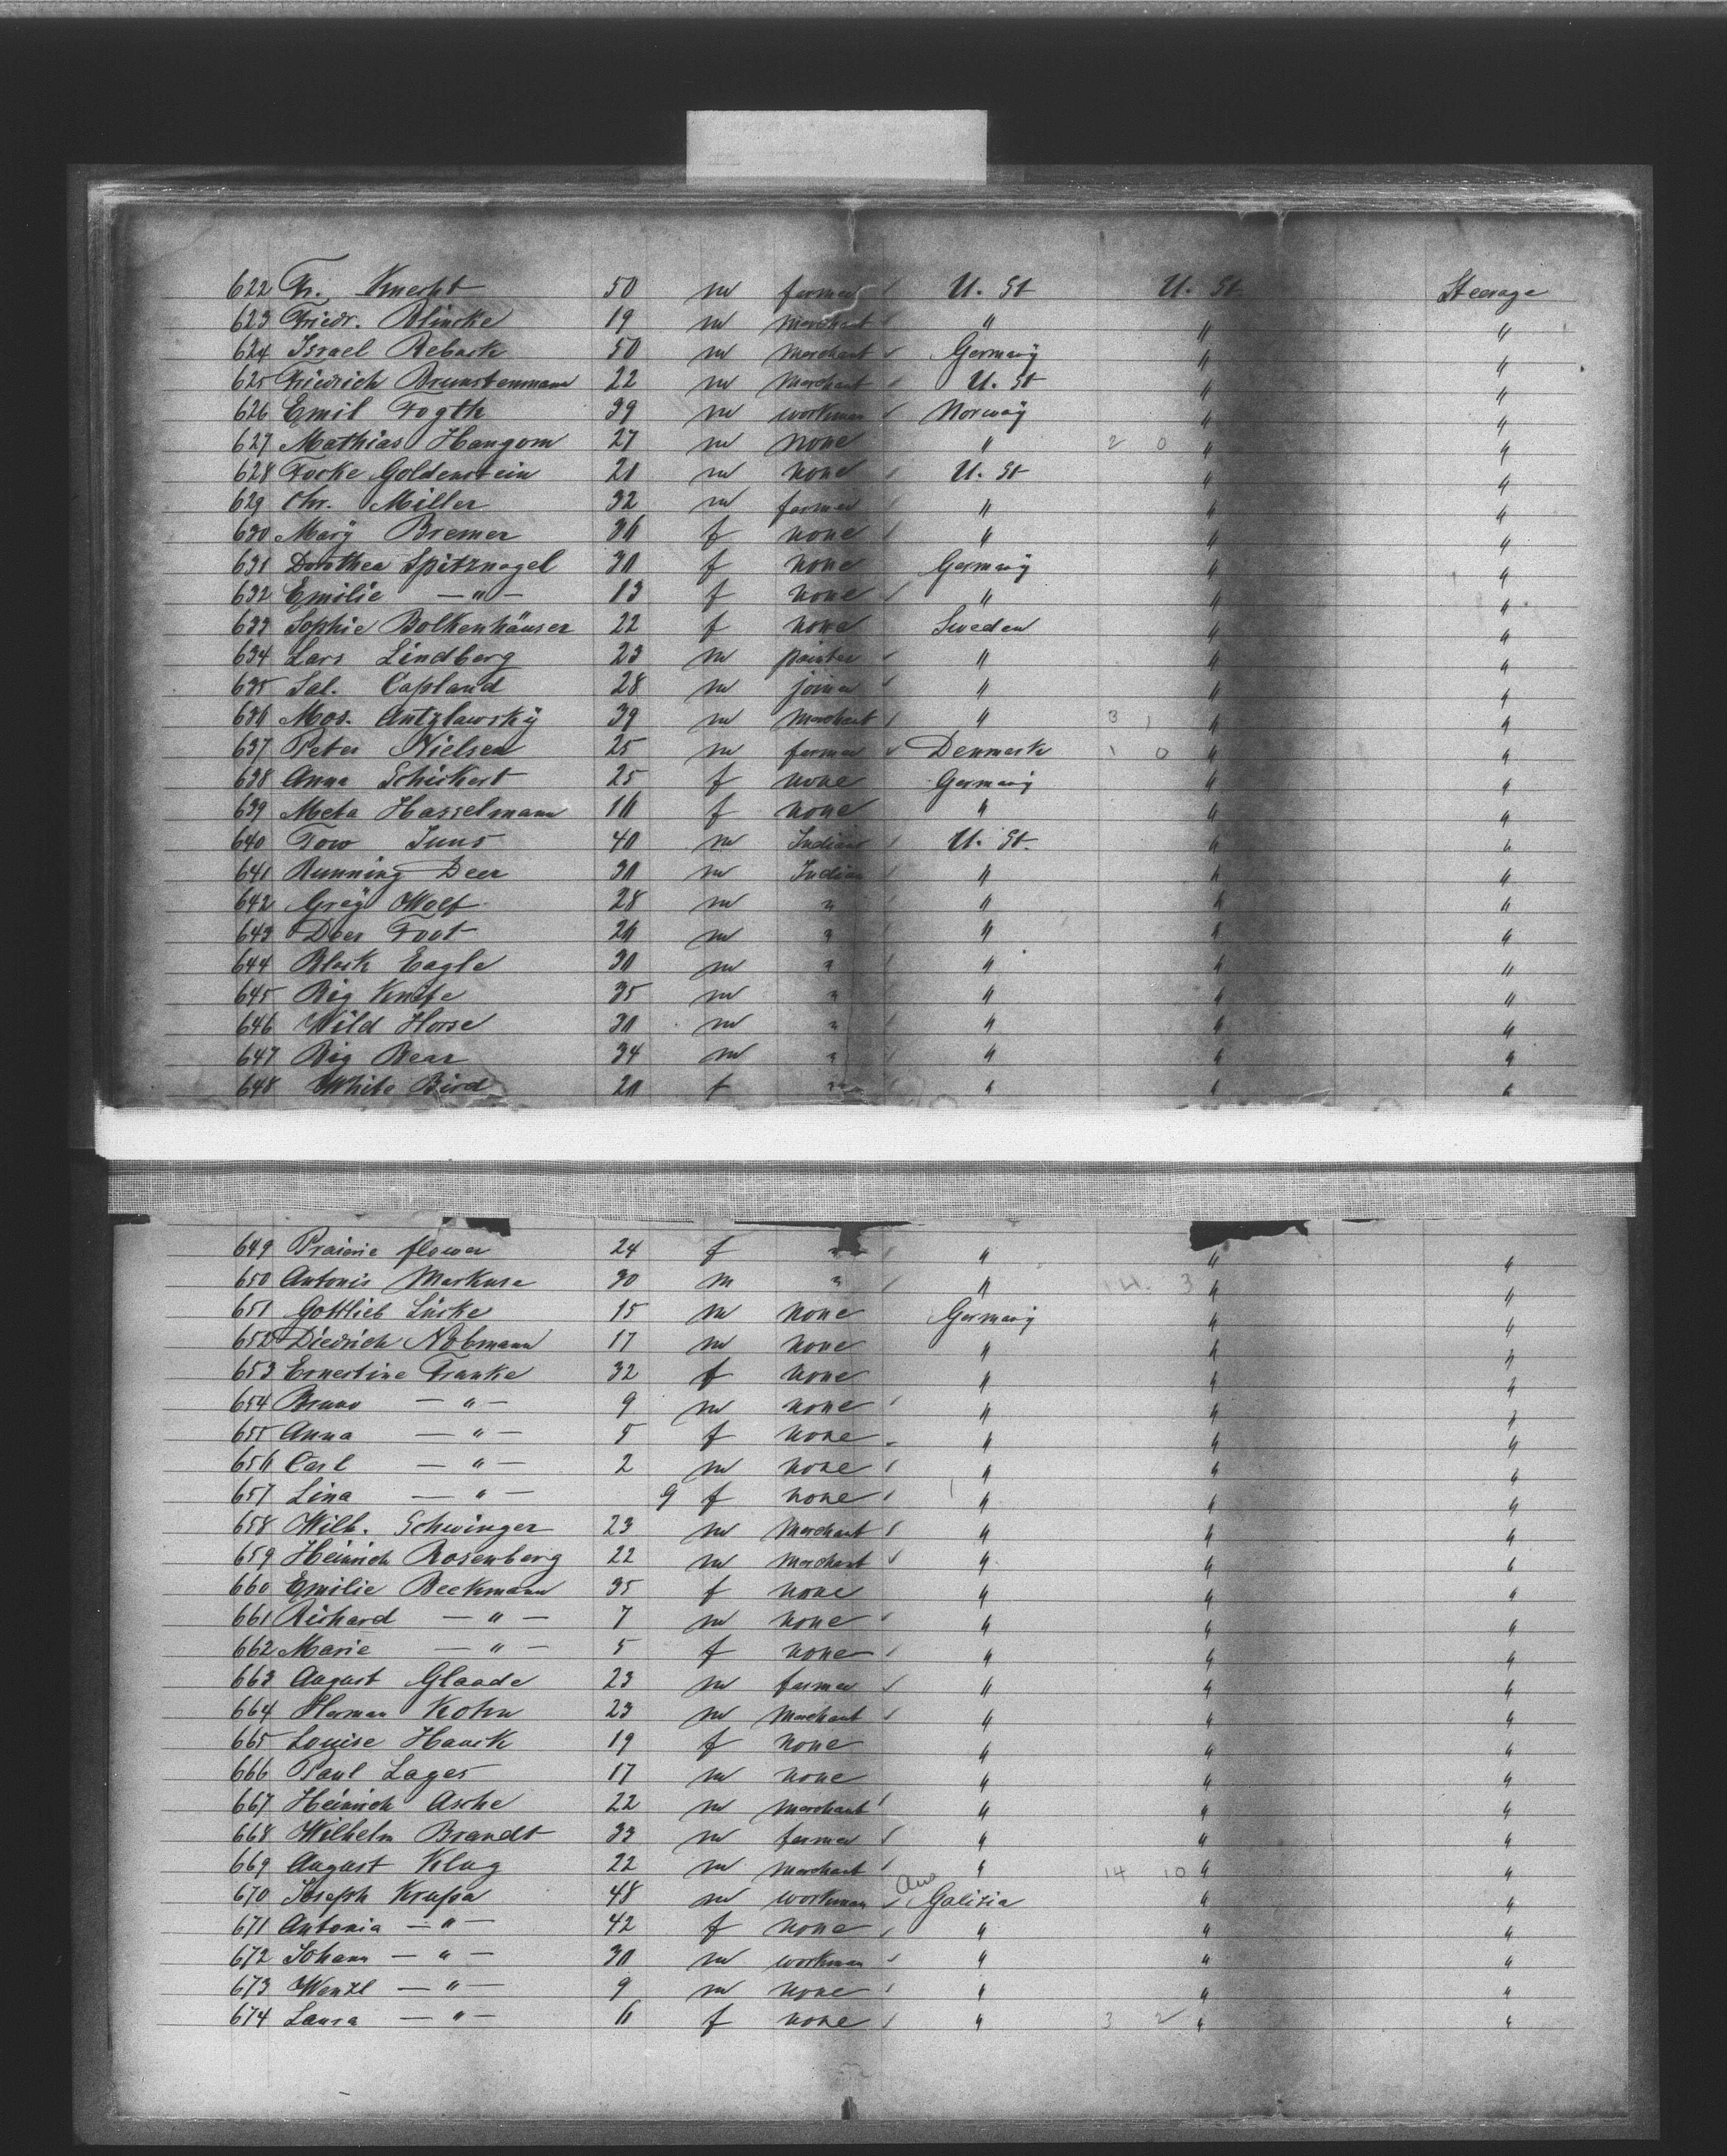 622 Fr. Knecht 50 m farmer U. St U. St Steerage
623 Friedr. Blincke 19 m merchant " " "
624 Israel Reback 50 m merchant Germany " "
625 Friedrich Brunstermann 22 m merchant U. St " "
626 Emil Fogth 39 m workman Norway " "
627 Mathias Hangom 27 m none " 2 0 " "
628 Focke Goldenstein 21 m none U. St " "
629 Chr. Miller 32 m farmer " " "
630 Mary Bremer 36 f none " " "
631 Dorothea Spitznagel 30 f none Germany " "
632 Emilie — " — 13 f none " " "
633 Sophie Bolkenhäuser 22 f none Sweden " "
634 Lars Lindberg 23 m painter " " "
635 Sal. Capland 28 m joiner " " "
636 Mos. Antzlawsky 39 m merchant " 3 1 " "
637 Peter Nielsen 25 m farmer Denmark 1 0 " "
638 Anna Schickert 25 f none Germany " "
639 Meta Hasselmann 16 f none " " "
640 Tow Juns 40 m Indian U. St. " "
641 Running Deer 30 m Indian " " "
642 Grey Wolf 28 m " " " "
643 Deer Foot 20 m " " " "
644 Black Eagle 30 m " " " "
645 Big Knife 35 m " " " "
646 Wild Horse 30 m " " " "
647 Big Bear 34 m " " " "
648 White Bird 20 f " " " "
649 Prairie flower 24 f " " " "
650 Antonis Markusa 30 m " " 14. 3 " "
651 Gottlieb Lücke 15 m none Germany " "
652 Diedrich Nobmann 17 m none " " "
653 Ernestine Franke 32 f none " " "
654 Bruno — " — 9 m none " " "
655 Anna — " — 5 f none " " "
656 Carl — " — 2 m none " " "
657 Lina — " — 9 f none " " "
658 Wilh. Schwinger 23 m merchant " " "
659 Heinrich Rosenberg 22 m merchant " " "
660 Emilie Beckmann 35 f none " " "
661 Richard — " — 7 m none " " "
662 Marie — " — 5 f none " " "
663 August Glaade 23 m farmer " " "
664 Herman Kohn 23 m merchant " " "
665 Louise Hauck 19 f none " " "
666 Paul Lages 17 m none " " "
667 Heinrich Asche 22 m merchant " " "
668 Wilhelm Brandt 33 m farmer " " "
669 August Klug 22 m merchant " 14 10 " "
670 Joseph Krupa 48 m workman Aus Galizia " "
671 Antonia — " — 42 f none " " "
672 Johann — " — 30 m workman " " "
673 Wenzl — " — 9 m none " " "
674 Laura — " — 6 f none " 3 2 " "